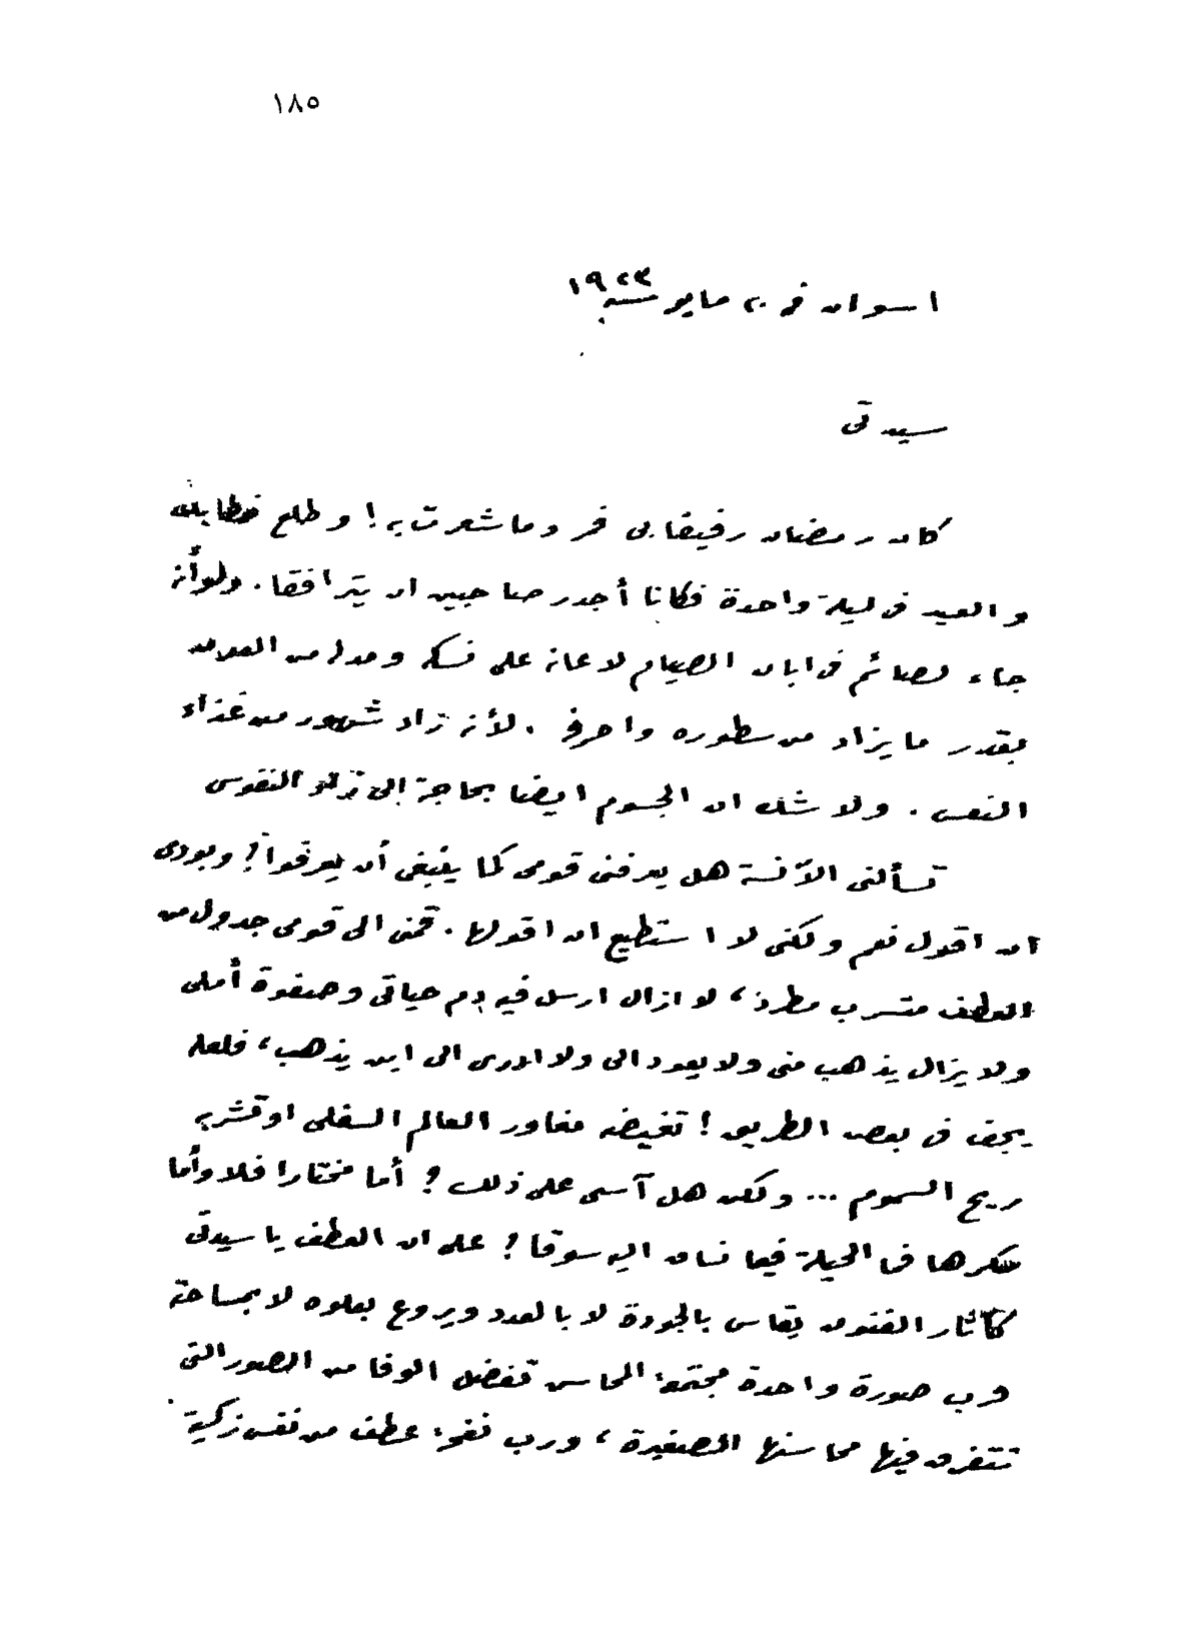 ١٨٥
اسوان في ٢٠ مايو سنة ١٩٢٣
سيدتى
كان رمضان رفيقا بى فمر وما شعرت به! وطلع خطابك
والعيد فى ليلة واحدة فكانا أجدر صاحبين ان يترافقا. ولو أنه
جاء لصائم فى ابان الصيام لاعانه على نسكه و من
بقدر ما يزاد من سطوره واحرفه. لأنه زاد شهور من غذاء
النفس. ولا شك ان الجسوم ايضا بحاجة إلى النفوس
تسألنى الآنسة هل يعرفنى قومى كما ينبغى أن يعرفوا؟ وبودى
ان اقول نعم ولكنى لا استطيع ان اقولها. فمنى الى قومى جدول من
العطف متسرب مطرد، لا ازال ارسل فيه دم حياتى وصفوة أملى
ولا يزال يذهب منى ولا يعود الى ولا ادرى الى اين يذهب، فلعله
يجف فى بعض الطريق! تغيضه مغاور العالم السفلى او تشربه
ريح السموم ... ولكن هل آسى على ذلك؟ أما مختارا فلا وأما
مكرها فما الحيلة فيما نساق اليه سوقا؟ على ان العطف يا سيدتى
كآثار الفنون يقاس بالجودة لا بالعدد ويروع بعلوه لا بمساحته
فرب صورة واحدة مجتمعة المحاسن تفضل الوفا من الصور التى
تتفرق فيها محاسنها الصغيرة، ورب نفحة عطف من نفس زكية